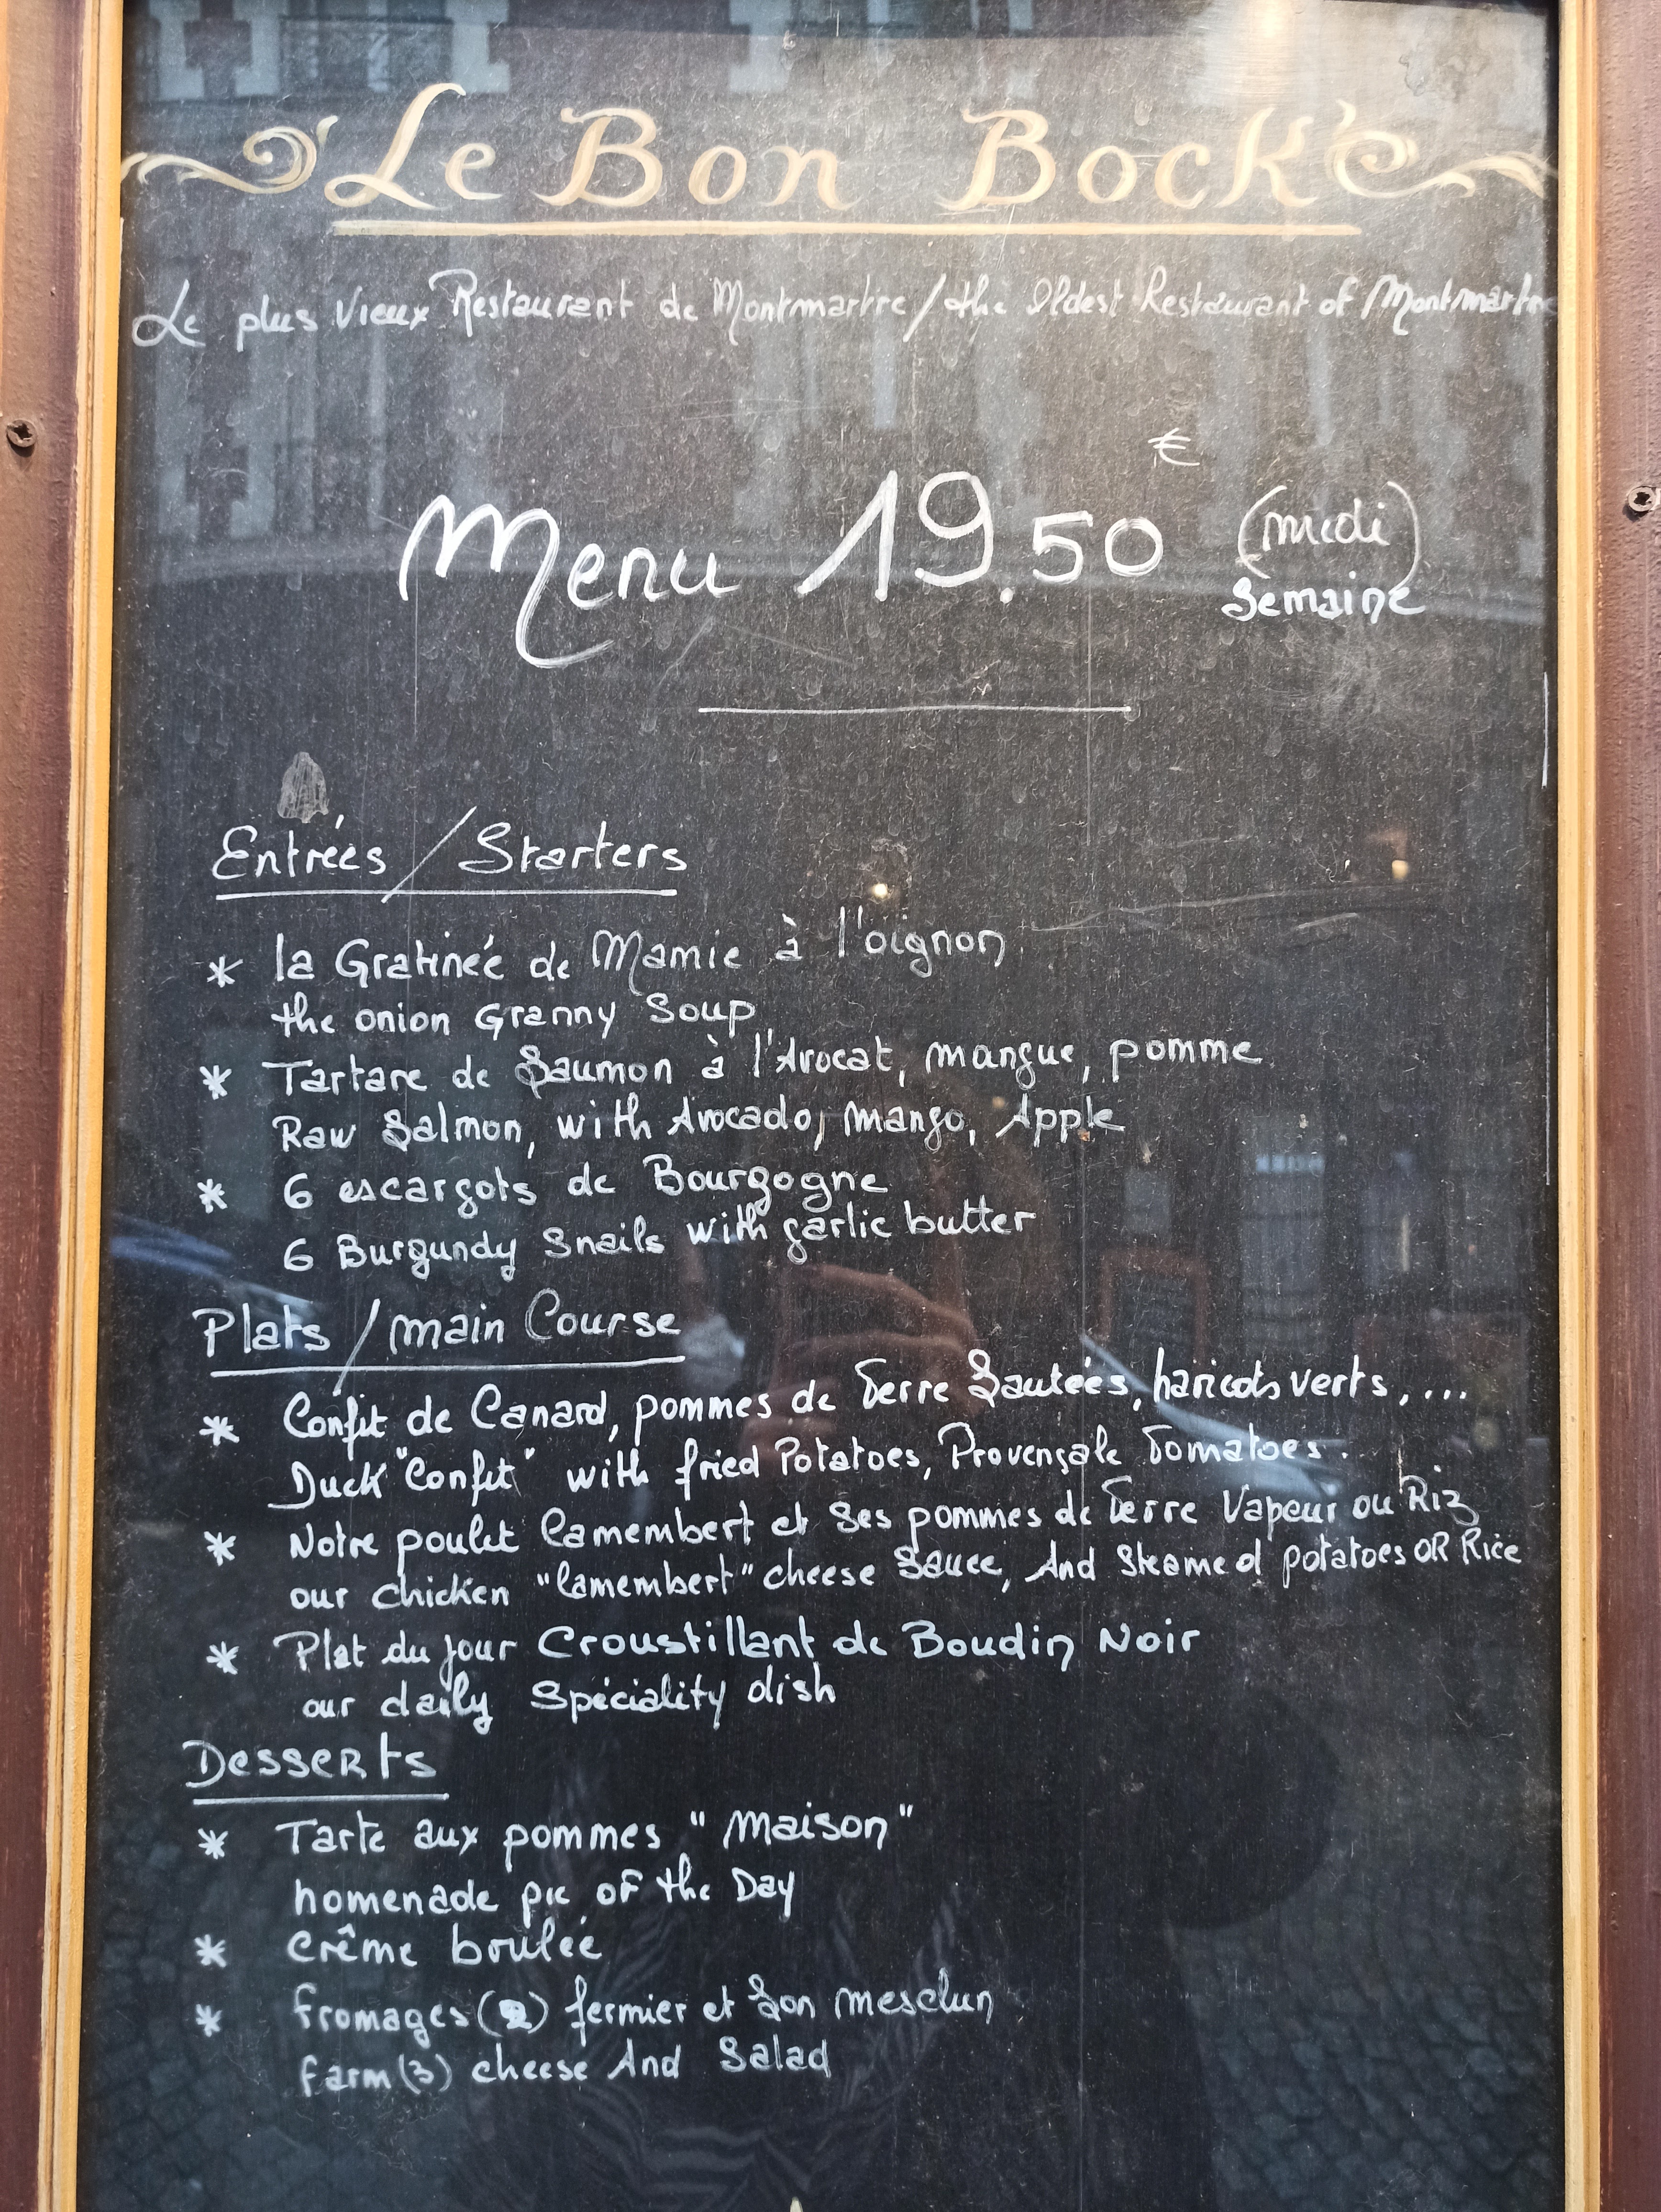 Le Bon Bock
Le plus Vieux Restaurant de Montmartre / the Oldest Restaurant of Montmartre
Menu 19.50 € (midi)
Semaine
Entrées / Starters
* la Gratinée de Mamie à l'oignon
the onion Granny Soup
* Tartare de Saumon à l'Avocat, mangue, pomme
Raw Salmon, with Avocado, mango, Apple
* 6 escargots de Bourgogne
6 Burgundy Snails with garlic butter
Plats / main Course
* Confit de Canard, pommes de Terre Sautées, haricots verts, ...
Duck "Confit" with fried Potatoes, Provençale Tomatoes.
* Notre poulet Camembert et ses pommes de Terre Vapeur ou Riz
our chicken "Camembert" cheese Sauce, And Steamed potatoes OR Rice
* Plat du jour Croustillant de Boudin Noir
our daily Spéciality dish
Desserts
* Tarte aux pommes "maison"
homenade pie of the Day
* crême boulée
* fromages (2) fermier et Son mesclun
farm (3) cheese And Salad